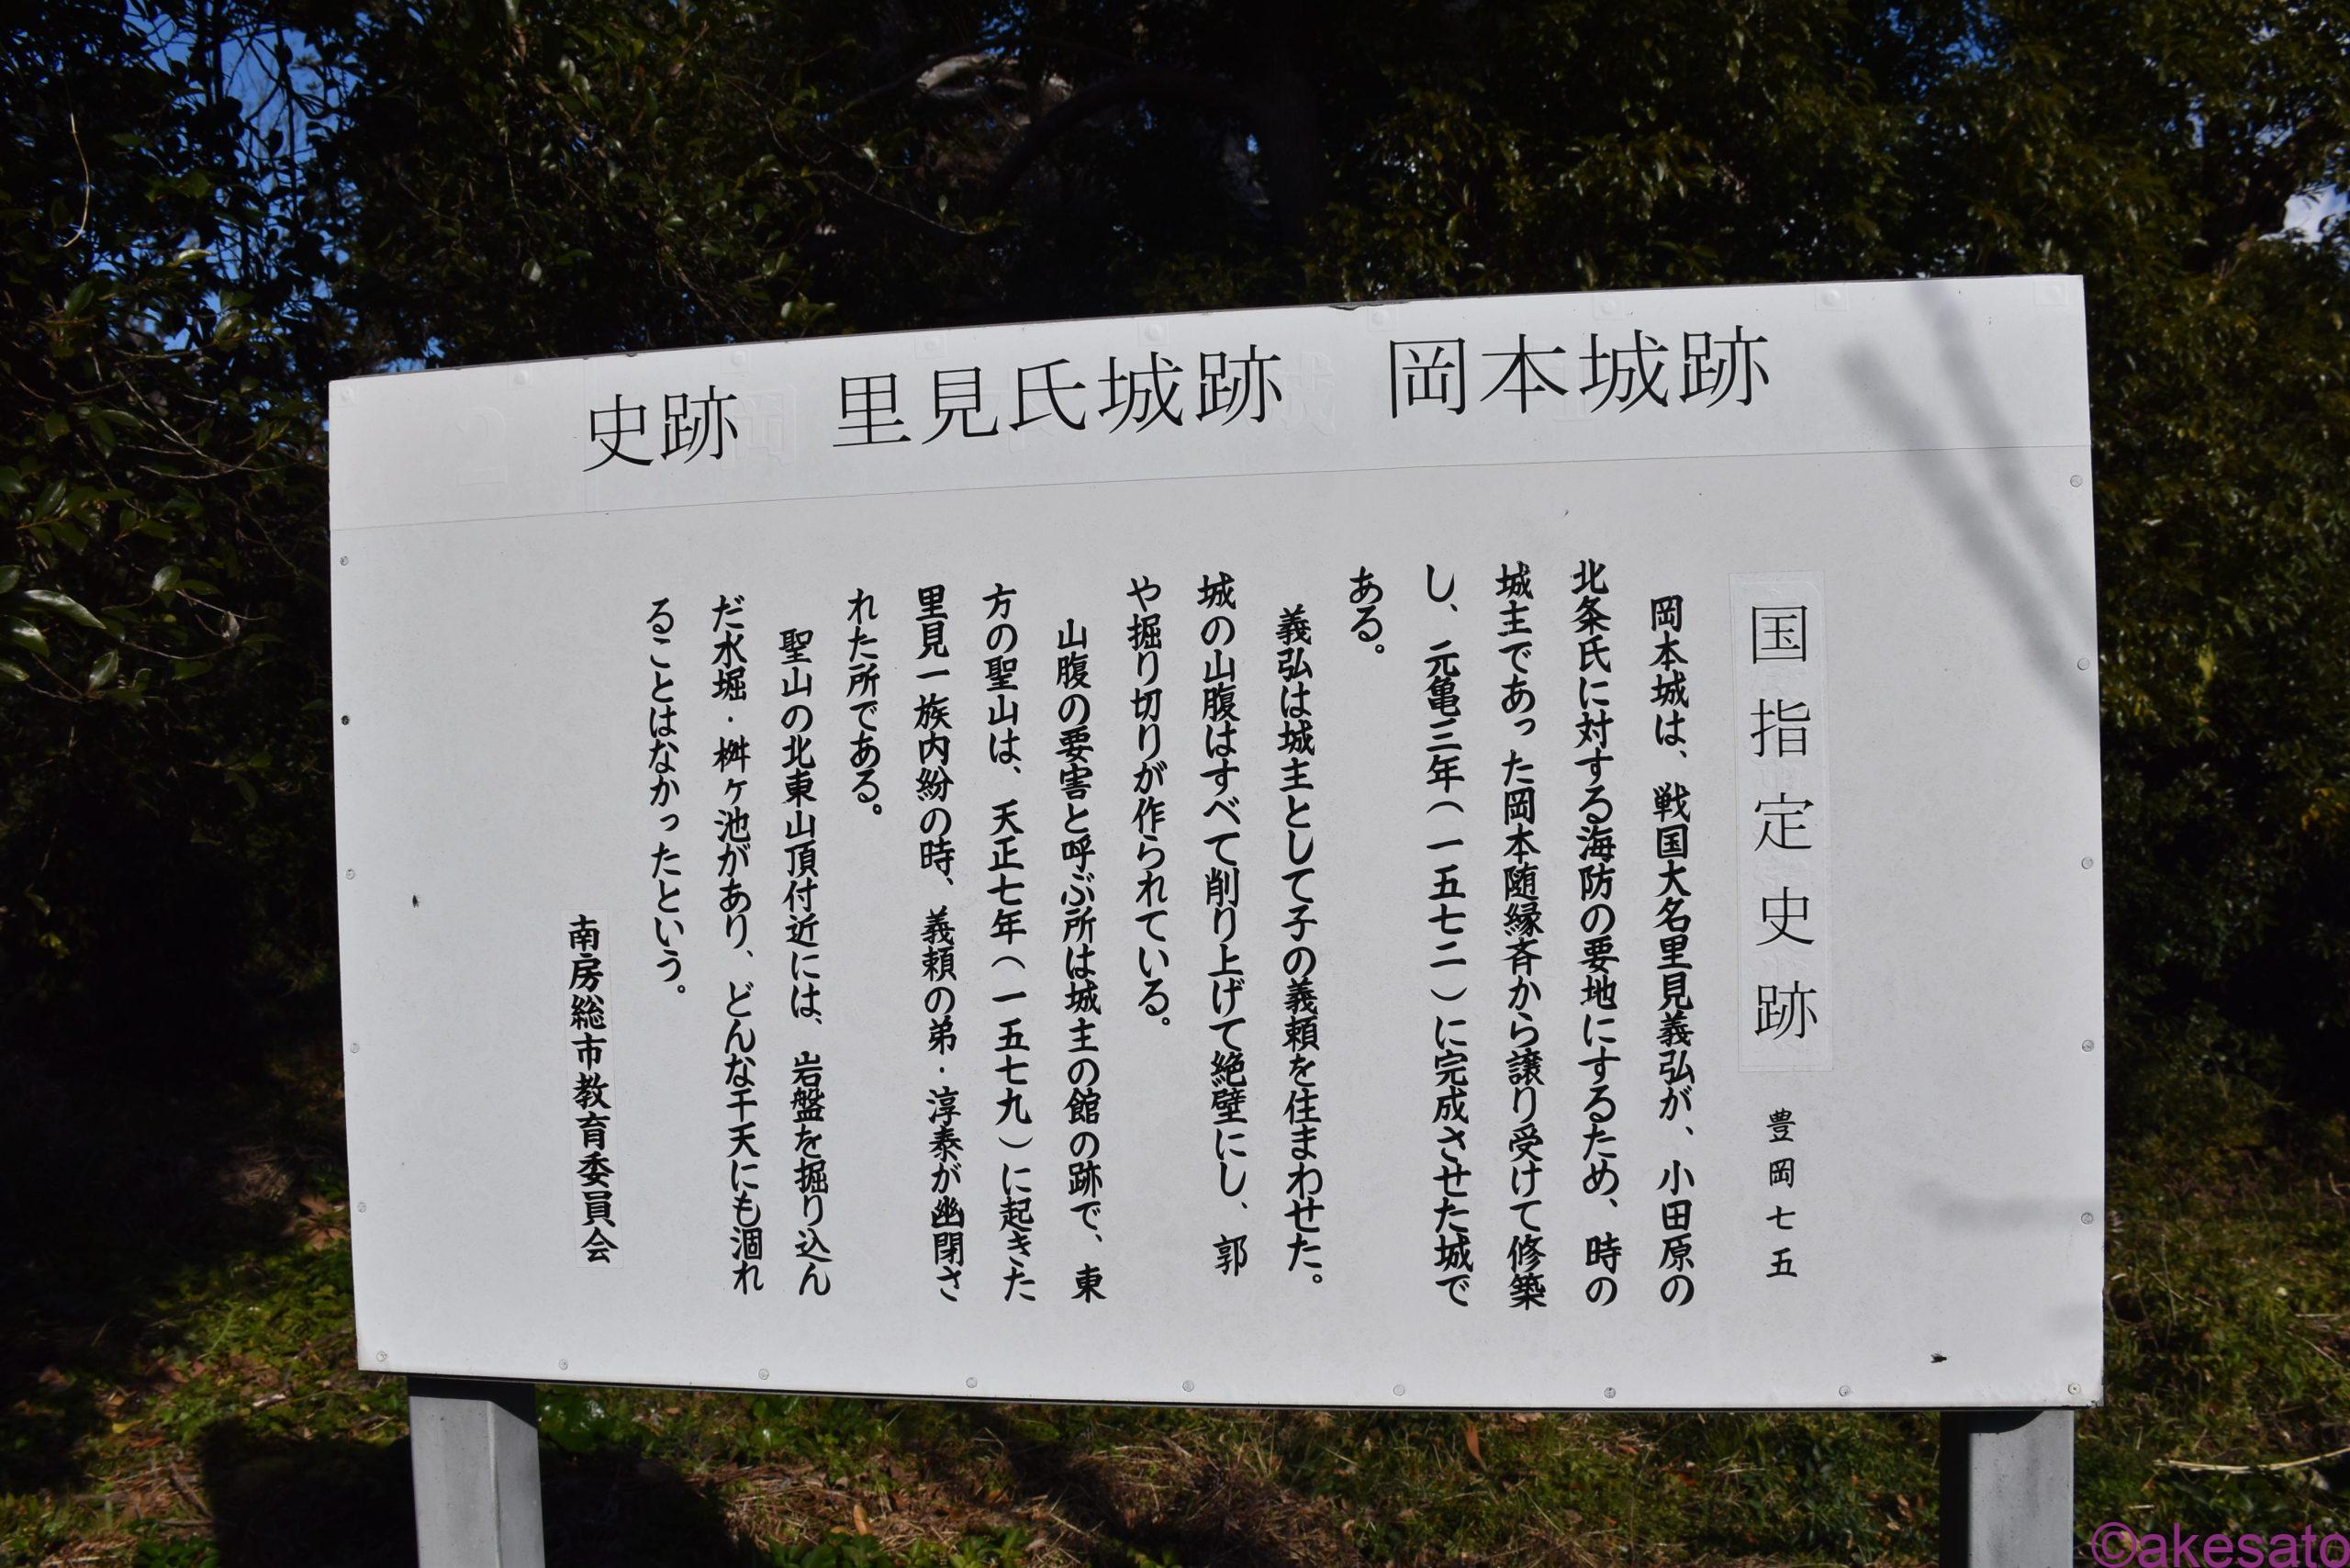 史跡　里見氏城跡　岡本城跡
国指定史跡　豊岡七五
岡本城は、戦国大名里見義弘が、小田原の
北条氏に対する海防の要地にするため、時の
城主であった岡本随縁斉から譲り受けて修築
し、元亀三年（一五七二）に完成させた城で
ある。
義弘は城主として子の義頼を住まわせた。
城の山腹はすべて削り上げて絶壁にし、郭
や掘り切りが作られている。
山腹の要害と呼ぶ所は城主の館の跡で、東
方の聖山は、天正七年（一五七九）に起きた
里見一族内紛の時、義頼の弟・淳泰が幽閉さ
れた所である。
聖山の北東山頂付近には、岩盤を掘り込ん
だ水堀・桝ヶ池があり、どんな干天にも涸れ
ることはなかったという。
南房総市教育委員会
©akesato